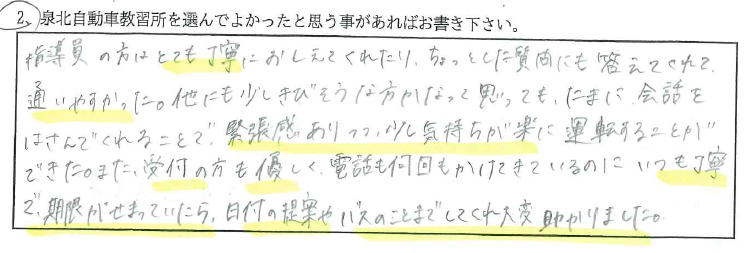 2、泉北自動車教習所を選んでよかったと思う事があればお書き下さい。
指導員の方はとても丁寧におしえてくれたり、ちょっとした質問にも答えてくれて、
通いやすかった。他にも少しきびそうな方かなって思っても、たまに会話を
はさんでくれることで、緊張感ありつつ、少し気持ちが楽に運転することが
できた。また、受付の方も優しく、電話も何回もかけてきているのにいつも丁寧
で、期限がせまっていたら、日付の提案やバスのことまでしてくれ大変助かりました。